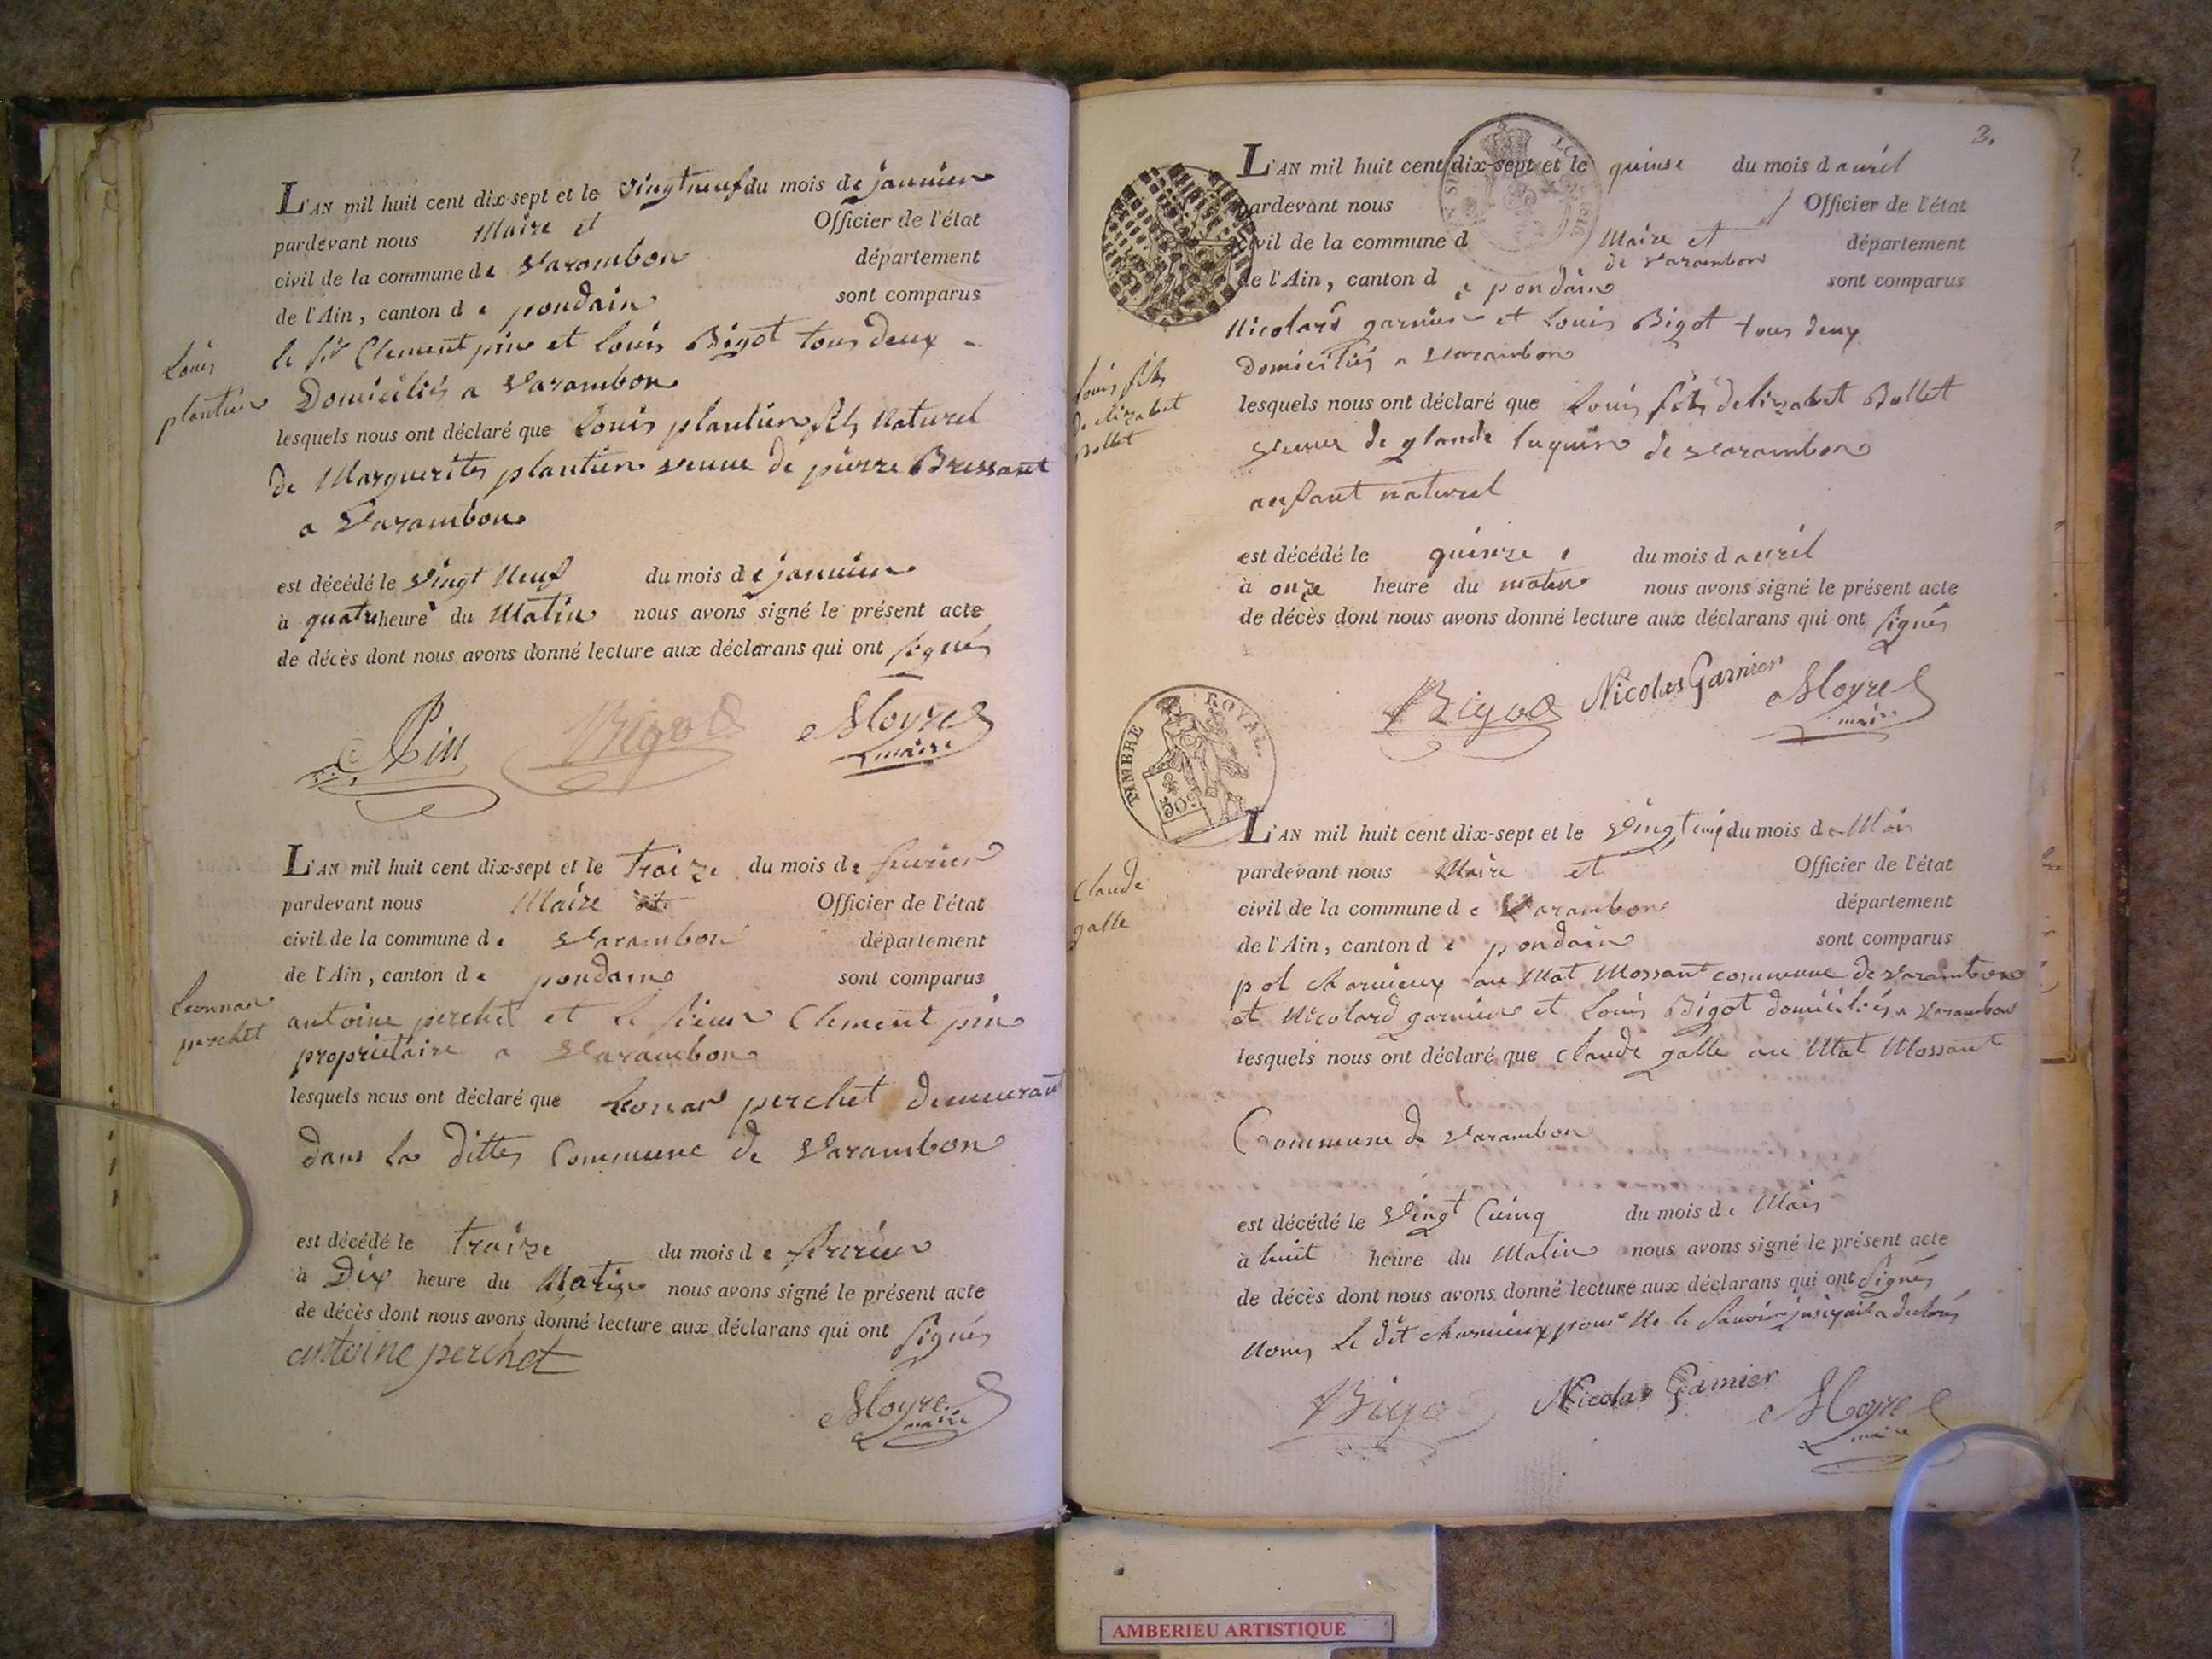 L'AN mil huit cent dix-sept et le vingt neuf du mois de janvier
pardevant nous Maire et Officier de l'état
civil de la commune de Varambon département
de l'Ain, canton de pondain sont comparus
le sr Clement pin et Louis Bigot tous deux
Domiciliés a Varambon
Louis
plantier
lesquels nous ont déclaré que Louis plantier fils naturel
de Marguerites plantier veuve de pierre Bressant
a Varambon
est décédé le vingt Neuf du mois de janvier
à quatre heure du Matin nous avons signé le présent acte
de décès dont nous avons donné lecture aux déclarans qui ont signés
Pin Bigot Moyret
maire
L'AN mil huit cent dix-sept et le traize du mois de fevrier
pardevant nous Maire et Officier de l'état
civil de la commune de Varambon département
de l'Ain, canton de pondain sont comparus
Leonnar
perchet
antoine perchet et le sieur Clement pin
propriétaire a Varambon
lesquels nous ont déclaré que Leonar perchet demeurant
dans la dittes Commune de Varambon
est décédé le traize du mois de fevrier
à Dix heure du Matin nous avons signé le présent acte
de décès dont nous avons donné lecture aux déclarans qui ont signés
antoine perchet
Moyret
maire
3.
L'AN mil huit cent dix-sept et le quinse du mois d avril
pardevant nous Officier de l'état
civil de la commune d Maire et département
de Varambon
de l'Ain, canton d e pondain sont comparus
Nicolard garnier et Louis Bigot tous deux
Domiciliés a Varambon
Louis fils
de elizabet
Bollet
lesquels nous ont déclaré que Louis fils delizabet Bollet
veuve de glaude luquin de varambon
anfant naturel
est décédé le quinze du mois d avril
à onze heure du matin nous avons signé le présent acte
de décès dont nous avons donné lecture aux déclarans qui ont signés
Bigot Nicolas Garnier Moyret
maire
TIMBRE ROYAL.
50c
L'AN mil huit cent dix-sept et le vingt cinq du mois de Mais
pardevant nous Maire et Officier de l'état
civil de la commune de Varambon département
de l'Ain, canton de pondain sont comparus
Claude
galle
pol charnieux au Mat Mossant commune de varambon
et Nicolard garnier et Louis Bigot domiciliés a Varambon
lesquels nous ont déclaré que claude galle au Mat Mossant
Commune de Varambon
est décédé le vingt Cuinq du mois de Mais
à huit heure du Matin nous avons signé le présent acte
de décès dont nous avons donné lecture aux déclarans qui ont signés
Nous le dit charnieux pour Ne le savoir
Bigot Nicolas Garnier Moyret
maire
AMBERIEU ARTISTIQUE